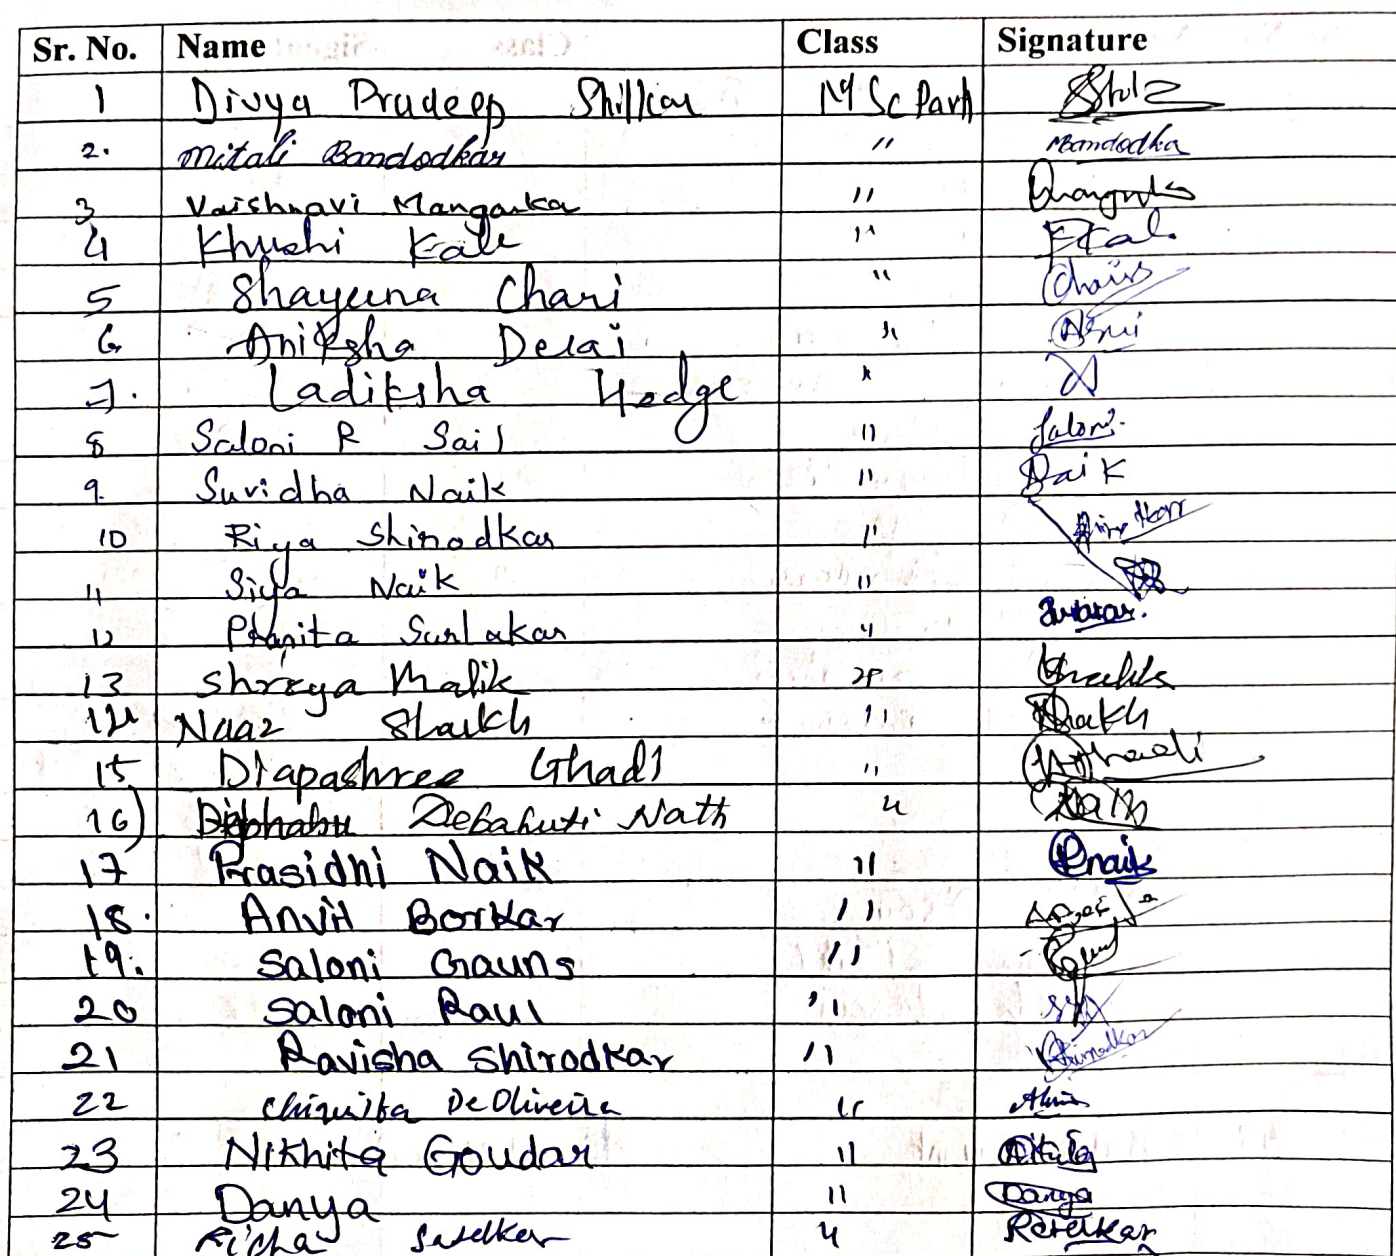 Sr. No. Name Class Signature
1 Divya Pradeep Shilkar M Sc Part I
2. Mitali Bandodkar " Bandodka
3 Vaishnavi Mangaonkar "
4 Khushi Kale " Kale
5 Shayuna Chari " Charis
6 Aniksha Desai "
7. Ladiksha Hedge "
8 Saloni R Sail " Saloni.
9. Suvidha Naik " Naik
10 Riya Shirodkar " Shirodkar
11 Siya Naik "
12 Pranita Surlakar "
13 Shreya Malik
14 Naaz Shaikh " Shaikh
15 Diapashree Ghadi "
16) Debahuti Nath " Nath
17 Prasidhi Naik " Pnaik
18. Anvit Borkar "
19. Saloni Gauns "
20 Saloni Raul "
21 Ravisha Shirodkar " Shirodkar
22 Chiquitta DeOliveira "
23 Nikhita Goudar "
24 Danya " Danya
25 Richa "